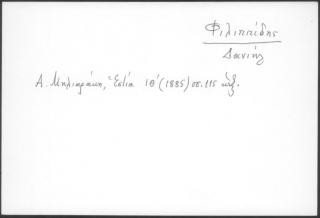 Φιλιππίδης
Δανιήλ
Α. Μηλιαράκη, Ἑστία ΙΘ' (1885) σσ. 115 κἑξ.